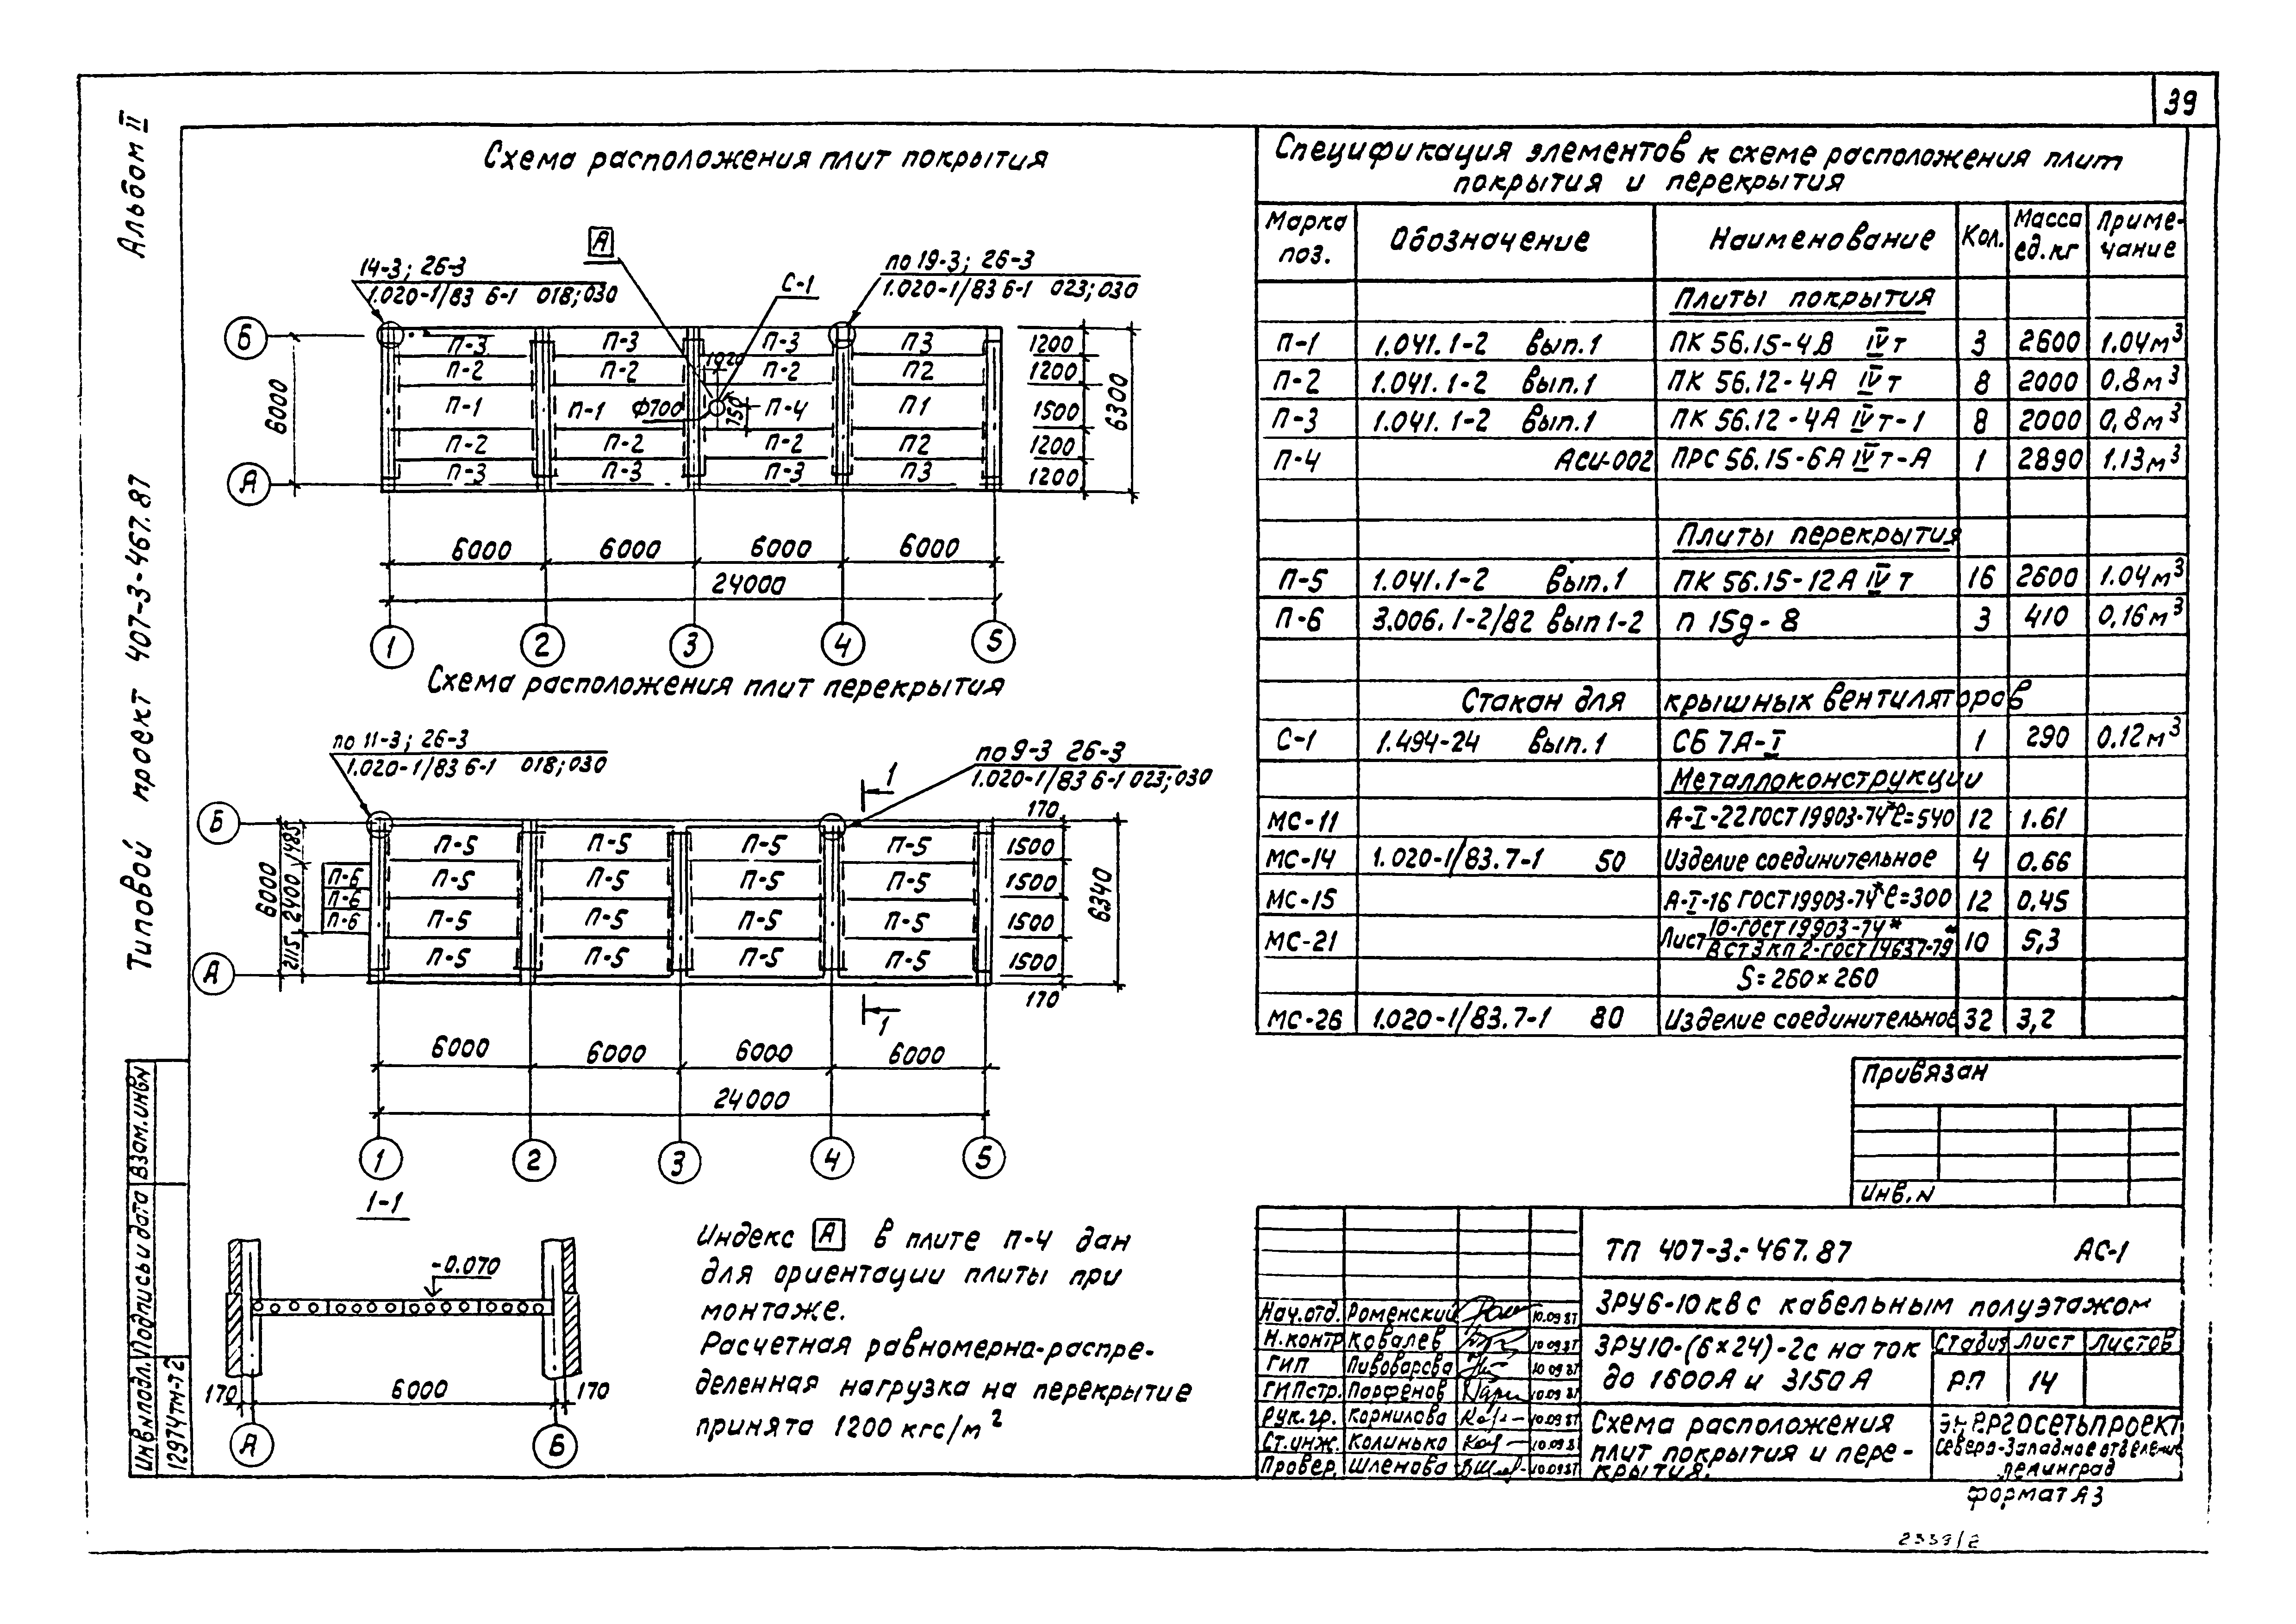 39
Альбом II
Типовой проект 407-3-467.87
Взам.инв.N
Подпись и дата
Инв.N подл.
12974тм-т2
Схема расположения плит покрытия
А
14-3; 26-3
1.020-1/83 6-1 018;030
С-1
по 19-3; 26-3
1.020-1/83 6-1 023;030
Б
А
6000
П-3 П-3 П-3 П3
П-2 П-2 П-2 П2
П-1 П-1 П-4 П1
П-2 П-2 П-2 П2
П-3 П-3 П-3 П3
1020
ф700
750
1200
1200
1500
1200
1200
6300
6000 6000 6000 6000
24000
1 2 3 4 5
Схема расположения плит перекрытия
по 11-3; 26-3
1.020-1/83 6-1 018;030
по 9-3 26-3
1.020-1/83 6-1 023;030
1
Б
А
6000
1485
2400
2115
П-6
П-6
П-6
П-5 П-5 П-5 П-5
П-5 П-5 П-5 П-5
П-5 П-5 П-5 П-5
П-5 П-5 П-5 П-5
170
1500
1500
1500
1500
170
6340
1
6000 6000 6000 6000
24000
1 2 3 4 5
1-1
-0.070
170 6000 170
А Б
Индекс А в плите П-4 дан
для ориентации плиты при
монтаже.
Расчетная равномерно-распре-
деленная нагрузка на перекрытие
принята 1200 кгс/м2
Спецификация элементов к схеме расположения плит
покрытия и перекрытия
Марка поз. Обозначение Наименование Кол. Масса ед.кг Приме-чание
Плиты покрытия
П-1 1.041.1-2 вып.1 ПК 56.15-4В IVт 3 2600 1.04м3
П-2 1.041.1-2 вып.1 ПК 56.12-4А IVт 8 2000 0.8м3
П-3 1.041.1-2 вып.1 ПК 56.12-4А IVт-1 8 2000 0,8м3
П-4 АСИ-002 ПРС 56.15-6А IVт-А 1 2890 1.13м3
Плиты перекрытия
П-5 1.041.1-2 вып.1 ПК 56.15-12А IVт 16 2600 1.04м3
П-6 3.006.1-2/82 вып 1-2 п 15д-8 3 410 0,16м3
Стакан для крышных вентиляторов
С-1 1.494-24 вып.1 СБ 7А-I 1 290 0.12м3
Металлоконструкции
МС-11 А-I-22 ГОСТ 19903-74* ℓ=540 12 1.61
МС-14 1.020-1/83.7-1 50 Изделие соединительное 4 0.66
МС-15 А-I-16 ГОСТ 19903-74* ℓ=300 12 0.45
МС-21 Лист 10-ГОСТ 19903-74* / ВСТ3кп2-ГОСТ 14637-79* 10 5,3
S=260×260
МС-26 1.020-1/83.7-1 80 Изделие соединительное 32 3,2
Привязан
Инв.N
ТП 407-3.-467.87 АС-1
ЗРУ6-10кв с кабельным полуэтажом
Нач.отд. Роменский 10.09.87
Н.контр Ковалев 10.09.87
ГИП Пивоварова 10.09.87
ГИПстр. Парфенов 10.09.87
Рук.гр. Корнилова 10.09.87
Ст.инж. Колинько 10.09.87
Провер. Шленова 10.09.87
ЗРУ10-(6×24)-2с на ток
до 1600А и 3150А
Стадия Лист Листов
РП 14
Схема расположения
плит покрытия и пере-
крытия.
Энергосетьпроект
Северо-Западное отделение
Ленинград
формат А3